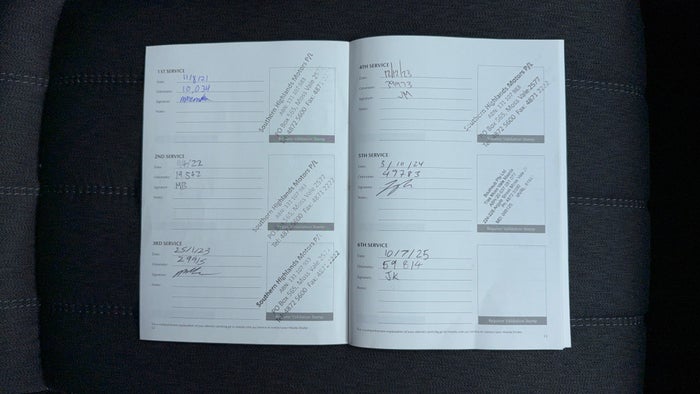 1ST SERVICE
Date: 11/8/21
Odometer: 10,024
Signature:
Notes:
Southern Highlands Motors P/L
ABN: 131 107 983
PO Box 565, Moss Vale 2577
Tel: 4872 5600 Fax: 4871 2222
Repairer Validation Stamp
2ND SERVICE
Date:
Odometer: 19542
Signature: MB
Notes:
Southern Highlands Motors P/L
ABN: 131 107 983
PO Box 565, Moss Vale 2577
Tel: 4872 5600 Fax: 4871 2222
Repairer Validation Stamp
3RD SERVICE
Date: 25/1/23
Odometer: 29915
Signature:
Notes:
Southern Highlands Motors P/L
ABN: 131 107 983
PO Box 565, Moss Vale 2577
Tel: 4872 5600 Fax: 4871 2222
Repairer Validation Stamp
4TH SERVICE
Date:
Odometer: 39973
Signature: JM
Notes:
Southern Highlands Motors P/L
ABN: 131 107 983
PO Box 565, Moss Vale 2577
Tel: 4872 5600 Fax: 4871 2222
Repairer Validation Stamp
5TH SERVICE
Date: 3/10/24
Odometer: 49783
Signature:
Notes:
Repairer Validation Stamp
6TH SERVICE
Date: 10/7/25
Odometer: 59814
Signature: JK
Notes:
Repairer Validation Stamp